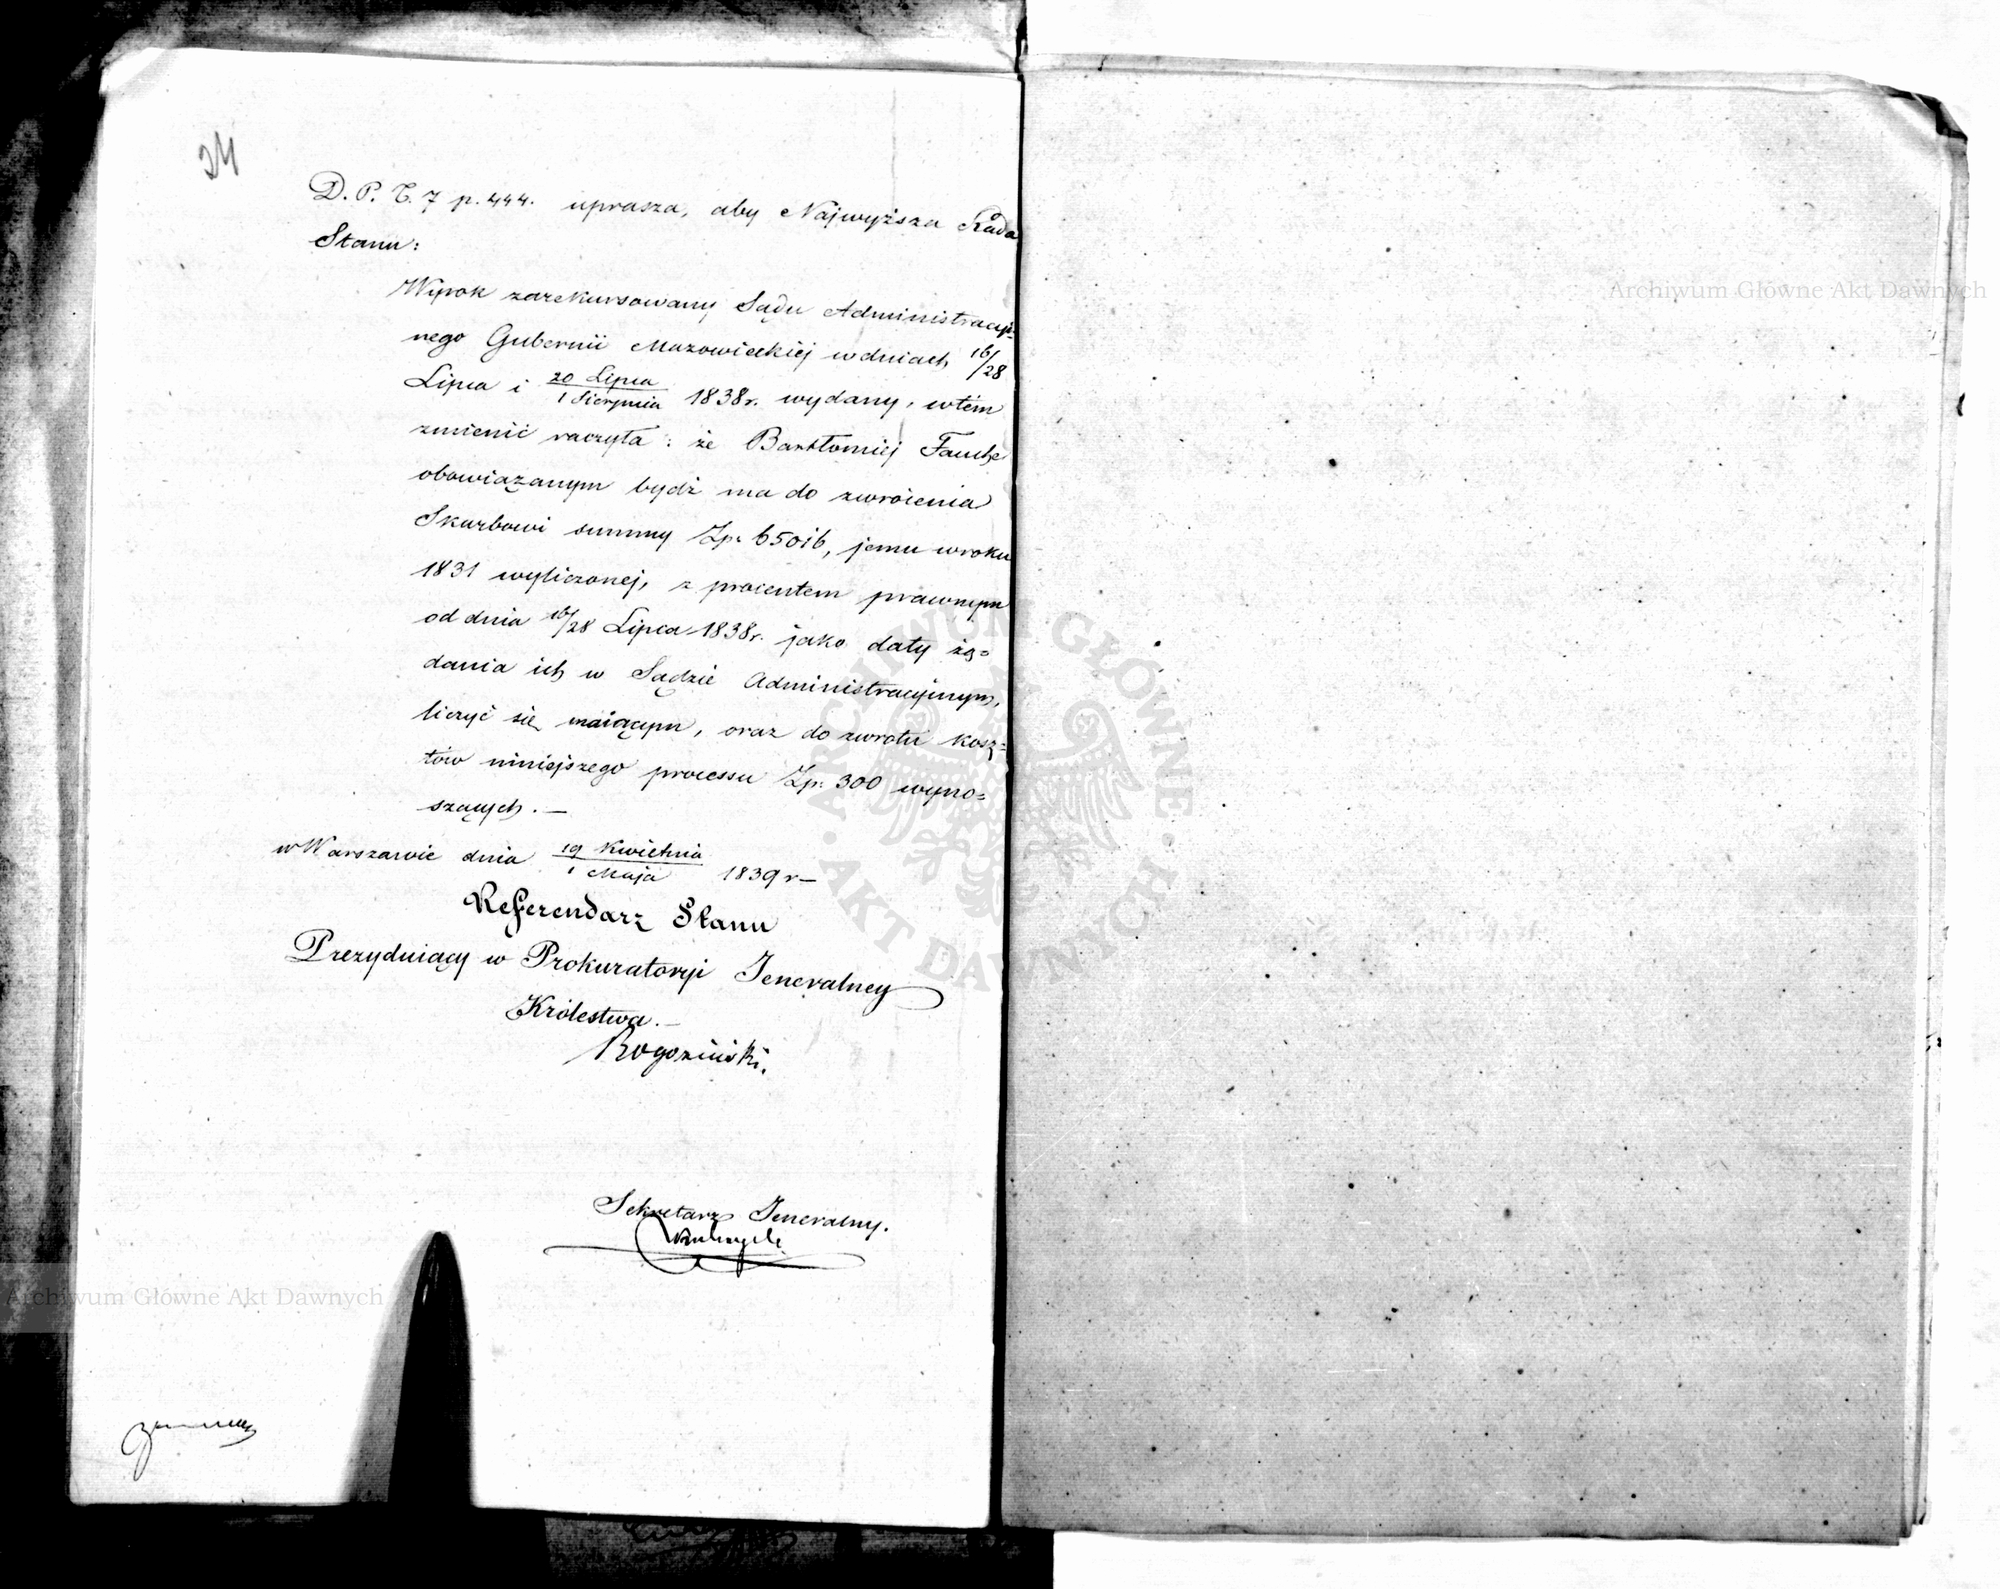 24
D. P. T. 7 p. 444. uprasza, aby Najwyższa Rada
Stanu:
Wyrok zarekursowany Sądu Administracyi-
nego Gubernii Mazowieckiej w dniach 16/28
Lipca i 20 Lipca/1 Sierpnia 1838r. wydany, w tém
zmienić raczyła: że Bartłomiej Fauche
obowiązanym bydź ma do zwrócenia
Skarbowi summy Zp: 65016, jemu w roku
1831 wyliczonej, z procentem prawnym
od dnia 16/28 Lipca 1838r. jako daty żą=
dania ich w Sądzie Administracyjnym,
liczyć się maiącym, oraz do zwrotu kosz=
tów niniejszego processu Zp: 300 wyno=
szących. —
w Warszawie dnia 19 Kwietnia/1 Maja 1839 r —
Referendarz Stanu
Prezyduiący w Prokuratoryi Jeneralney
Królestwa. —
Rogoziński.
Sekretarz Jeneralny.
Archiwum Główne Akt Dawnych
Archiwum Główne Akt Dawnych
ARCHIWUM GŁÓWNE · AKT DAWNYCH ·